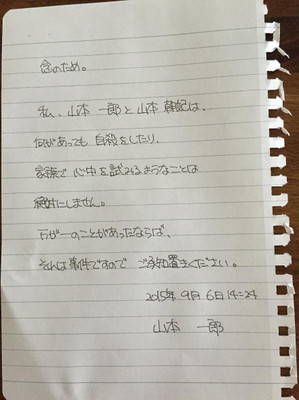 念のため。
私、山本 一郎と山本 韓記は、
何があっても自殺をしたり、
家族で心中を試みるようなことは
絶対にしません。
万が一のことがあったならば、
それは事件ですので ご承知置きください。
2015年 9月 6日 14:24
山本 一郎